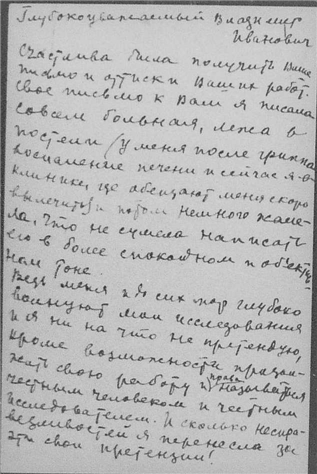 Глубокоуважаемый Владимир
Иванович
Счастлива была получить Ваше
письмо и оттиски Ваших работ.
Свое письмо к Вам я писала
совсем больная, лежа в
постели (у меня после гриппа
воспаление печени и сейчас я в
клинике, где обещают меня скоро
вылечить) и потом немного жале-
ла, что не сумела написать
его в более спокойном и объектив-
ном тоне.
Ведь меня до сих пор глубоко
волнуют мои исследования
и я ни на что не претендую,
кроме возможности продол-
жать свою работу и права называться
честным человеком и честным
исследователем. И сколько неспра-
ведливостей я перенесла за
эти свои претензии!